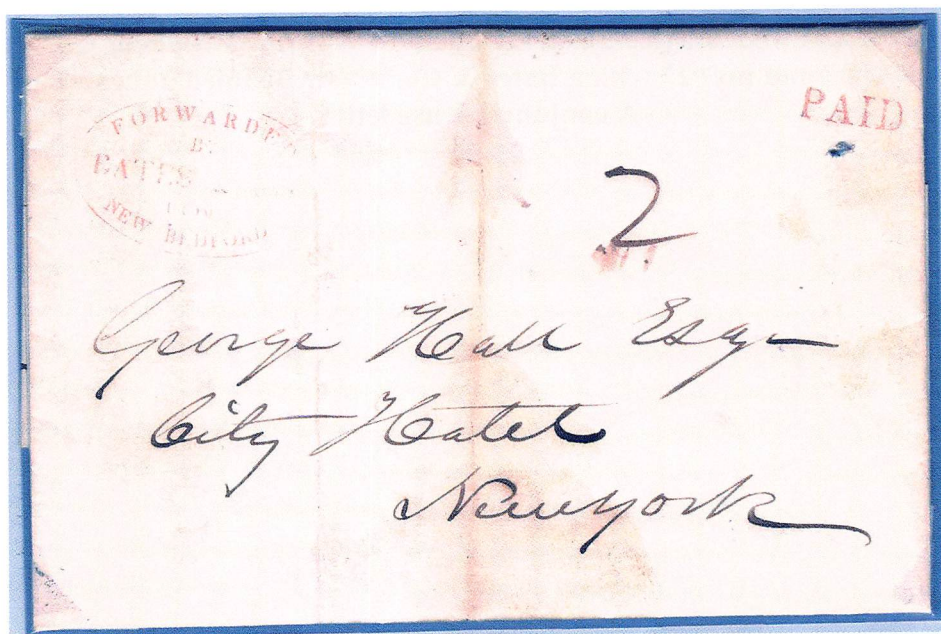 FORWARDE
BY
NEW BEDFORD
PAID
2
George Hall Esqr
City Hotel
New york